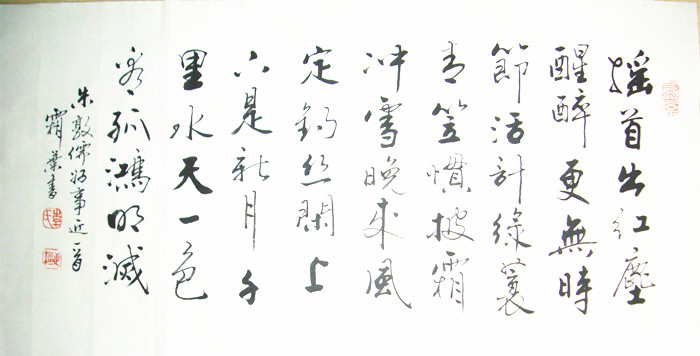 搖首出紅塵
醒醉更無時
節活計綠蓑
青笠慣披霜
冲雪晚来風
定釣絲閑上
下是新月千
里水天一色
看孤鴻明滅
朱敦儒好事近一首
霜葉書